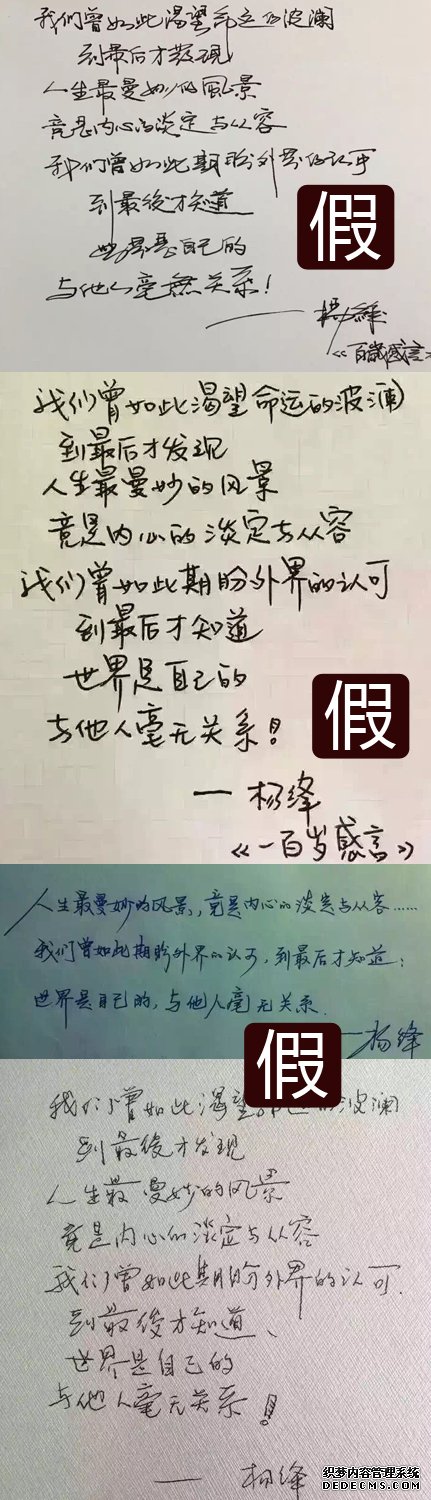 我们曾如此渴望命运的波澜
到最后才发现
人生最曼妙的風景
竟是内心的淡定与从容
我们曾如此期盼外界的认可
到最後才知道
世界是自己的
与他人毫無关系!
假
——杨绛
《百歲感言》
我们曾如此渴望命运的波澜
到最后才发现
人生最曼妙的风景
竟是内心的淡定与从容
我们曾如此期盼外界的认可
到最后才知道
世界是自己的
与他人毫无关系!
假
— 杨绛
《一百岁感言》
人生最曼妙的风景,竟是内心的淡定与从容……
我们曾如此期盼外界的认可,到最后才知道:
世界是自己的,与他人毫无关系.
——杨绛
假
我们曾如此渴望命运的波澜
到最後才发现
人生最曼妙的风景
竟是内心的淡定与从容
我们曾如此期盼外界的认可.
到最後才知道、
世界是自己的
与他人毫无关系!
—— 杨绛
织梦内容管理系统
DEDECMS.COM